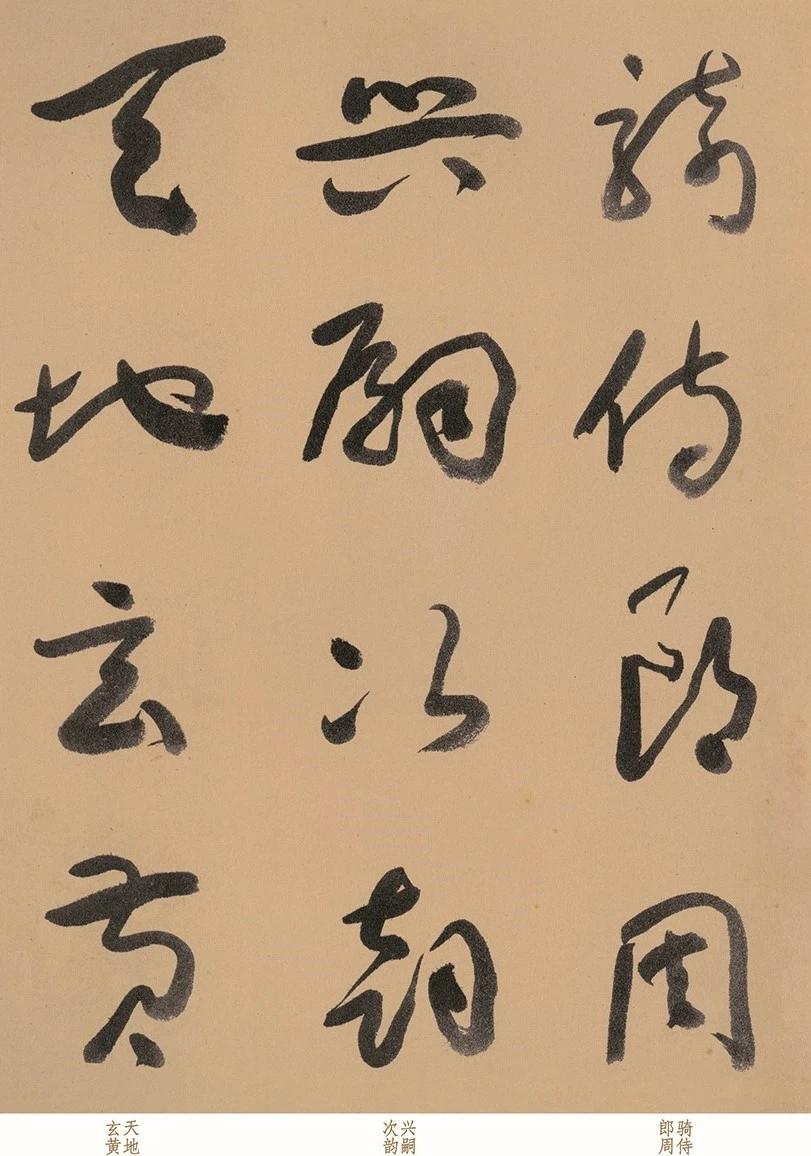 騎侍郎周
興嗣次韵
天地玄黄
骑侍
郎周
兴嗣
次韵
天地
玄黄